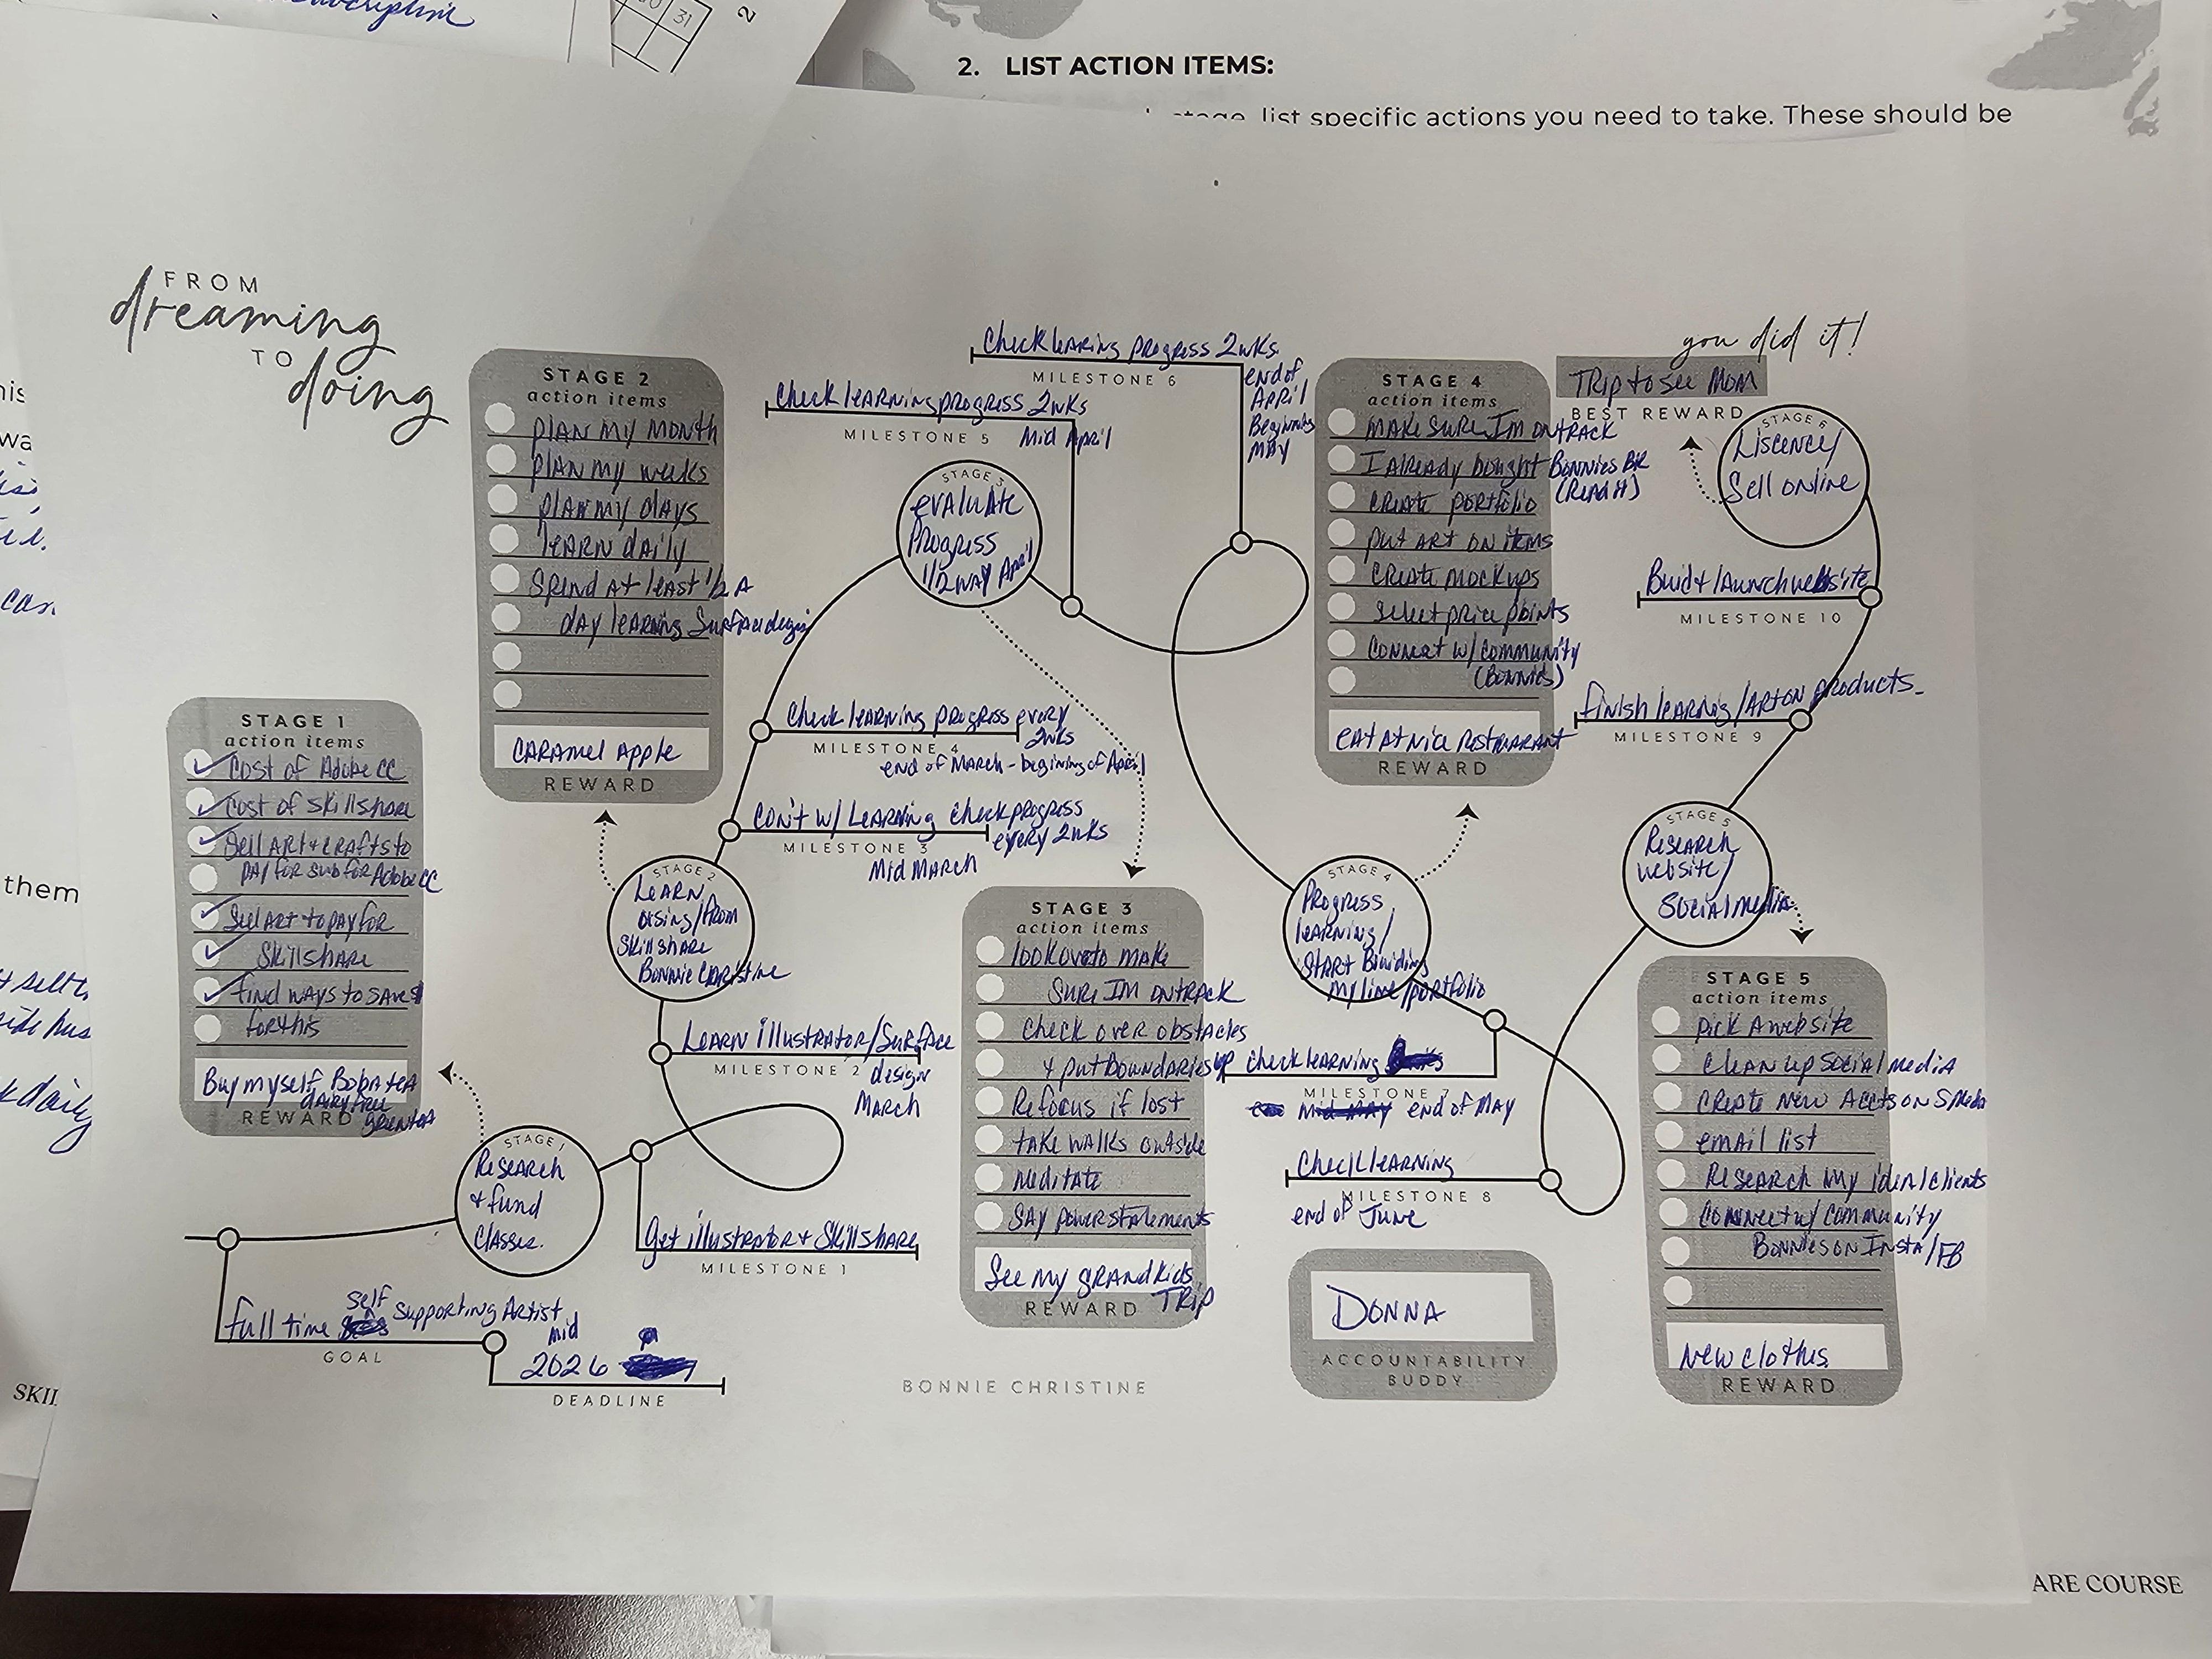 31
2
2. LIST ACTION ITEMS:
list specific actions you need to take. These should be
FROM
dreaming
TO
doing
them
can.
daily
SKIL
GOAL
full time self supporting Artist
DEADLINE
mid
2026
STAGE 1
Research
& fund
Classes.
STAGE 1
action items
Cost of Adobe CC
Cost of Skillshare
Sell ART & CRAFTS to
PAY for sub for Adobe CC
Sell ART to pay for
Skillshare
find ways to save $
for this
Buy myself Boba tea
dairy free
green tea
REWARD
Get illustrator & Skillshare
MILESTONE 1
Learn illustrator/Surface
MILESTONE 2
design
March
STAGE 2
Learn
Desing/from
Skillshare
Bonnie Christine
STAGE 2
action items
plan my month
plan my weeks
plan my days
learn daily
Spend at least 1/2 A
day learning Surface design
Caramel Apple
REWARD
Con't w/ Learning check progress
every 2wks
MILESTONE 3
Mid March
Check learning progress every
2wks
MILESTONE 4
end of March - begining of April
STAGE 3
evaluate
Progress
1/2 way April
STAGE 3
action items
look over to make
sure IM on track
check over obstacles
& put boundaries up
Refocus if lost
take walks outside
Meditate
SAY power statements
See my grandkids
TRip
REWARD
Check learning progress 2wks
MILESTONE 5
Mid April
Check learing progress 2wks
MILESTONE 6
end of
April
Begining
May
STAGE 4
Progress
learning/
Start Building
my line/portfolio
STAGE 4
action items
Make sure Im on track
I Already bought Bonnies BK
(Read it)
Create portfolio
put art on items
Create mockups
Select price points
Connect w/ community
(Bonnies)
eat at nice restaurant
REWARD
check learning
MILESTONE 7
end of May
Check learning
MILESTONE 8
end of June
STAGE 5
Research
website/
Social media
STAGE 5
action items
pick a website
clean up social media
Create new Accts on SMedia
email list
Research my ideal clients
Connect w/ community
Bonnies on Insta/FB
New clothes
REWARD
finish learning/Art on products
MILESTONE 9
Build & launch website
MILESTONE 10
STAGE 6
Liscence/
Sell online
you did it!
Trip to see Mom
BEST REWARD
DONNA
ACCOUNTABILITY
BUDDY
BONNIE CHRISTINE
ARE COURSE